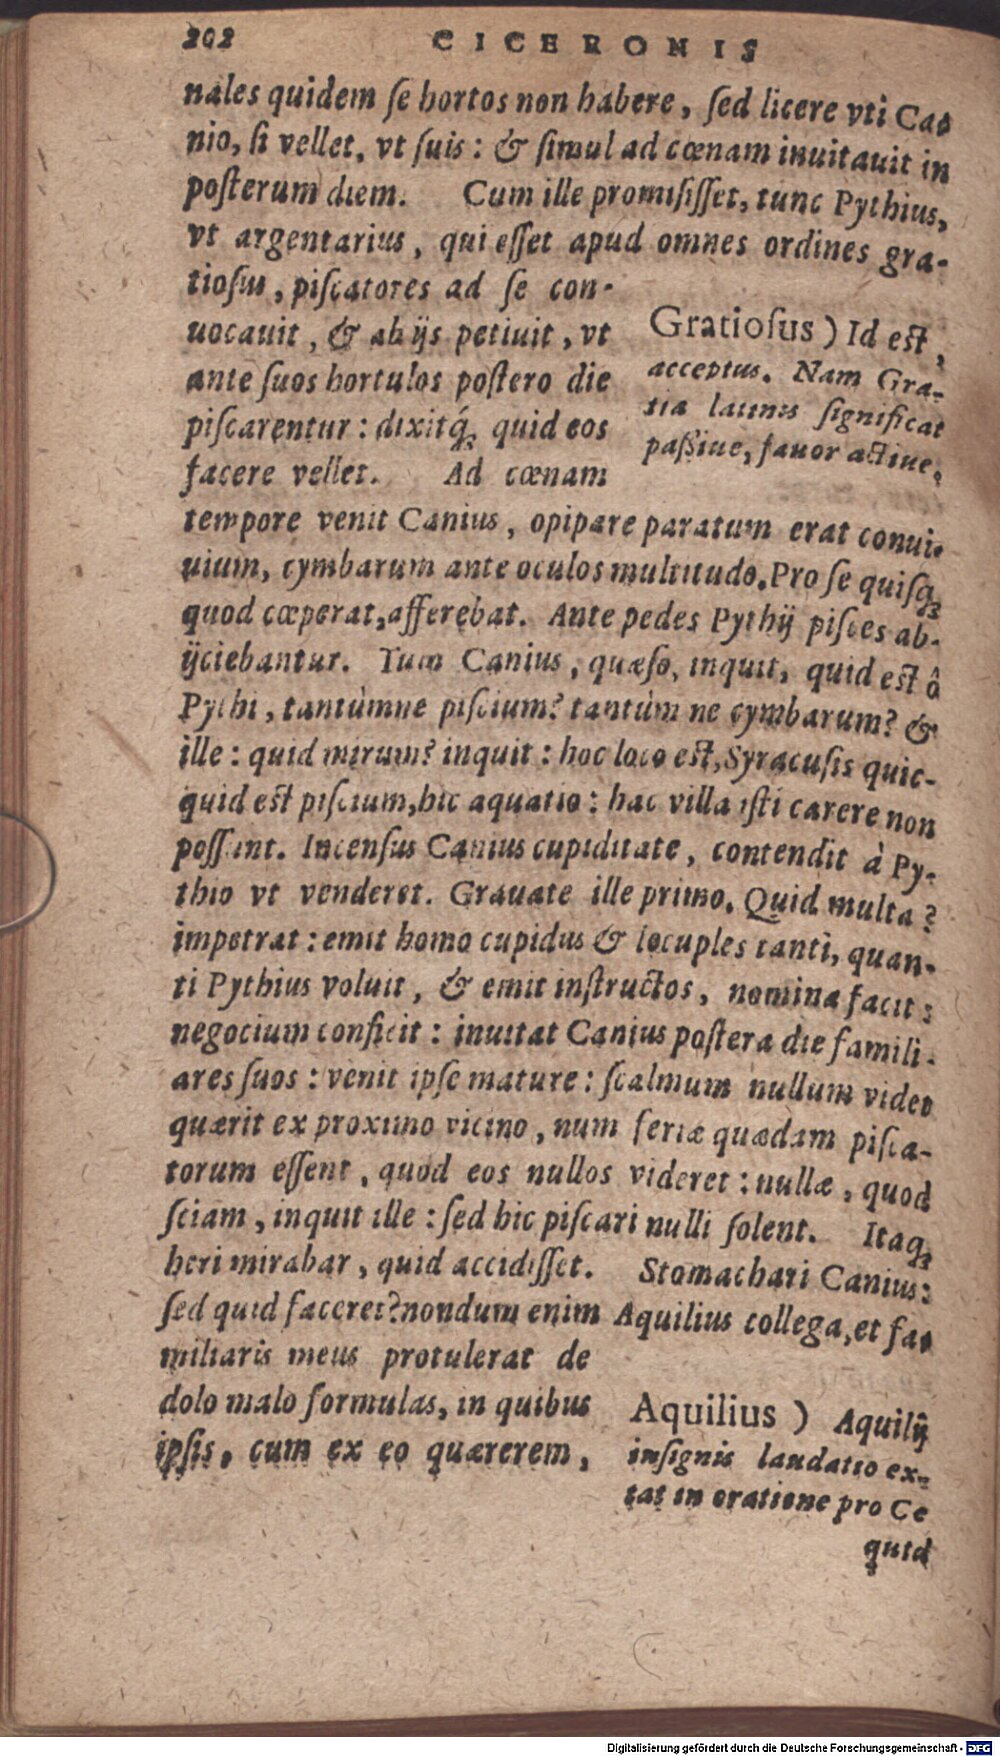 202 CICERONIS
nales quidem ſe hortos non habere, ſed licere vti Ca-
nio, ſi vellet, vt ſuis: & ſimul ad cœnam inuitauit in
poſterum diem. Cum ille promiſiſſet, tunc Pythius,
vt argentarius, qui eſſet apud omnes ordines gra-
tioſus, piſcatores ad ſe con-
uocauit, & ab ijs petiuit, vt
ante ſuos hortulos poſtero die
piſcarentur: dixitq́; quid eos
facere vellet. Ad cœnam
Gratioſus) Id eſt,
acceptus. Nam Gra-
tia latinis ſignificat
paſſiue, fauor actiue.
tempore venit Canius, opipare paratum erat conui-
uium, cymbarum ante oculos multitudo. Pro ſe quiſq;
quod cœperat, afferebat. Ante pedes Pythij piſces ab-
ijciebantur. Tum Canius, quæſo, inquit, quid eſt ô
Pythi, tantùmne piſcium? tantùm ne cymbarum? &
ille: quid mirum? inquit: hoc loco eſt, Syracuſis quic-
quid eſt piſcium, hic aquatio: hac villa iſti carere non
poſſunt. Incenſus Canius cupiditate, contendit à Py-
thio vt venderet. Grauate ille primo. Quid multa?
impetrat: emit homo cupidus & locuples tanti, quan-
ti Pythius voluit, & emit inſtructos, nomina facit:
negocium conficit: inuitat Canius poſtera die famili-
ares ſuos: venit ipſe mature: ſcalmum nullum videt
quærit ex proximo vicino, num feriæ quædam piſca-
torum eſſent, quod eos nullos videret: nullæ, quod
ſciam, inquit ille: ſed hic piſcari nulli ſolent. Itaq;
heri mirabar, quid accidiſſet. Stomachari Canius:
ſed quid faceret? nondum enim Aquilius collega, et fa-
miliaris meus protulerat de
dolo malo formulas, in quibus
ipſis, cum ex eo quærerem,
Aquilius) Aquilij
inſignis laudatio ex-
tat in oratione pro Ce
quid
Digitalisierung gefördert durch die Deutsche Forschungsgemeinschaft - DFG